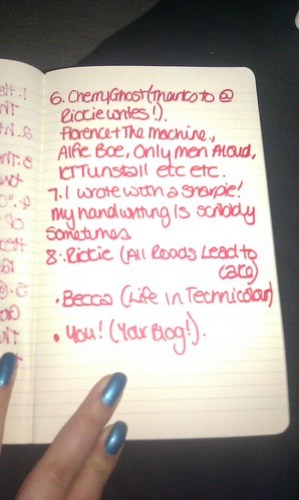 6. CherryGhost (Thanks to @
Rickie writes!).
Florence + The Machine.,
Alfie Boe, Only Men Aloud,
KT Tunstall etc etc.
7. I wrote with a sharpie!
My handwriting is scribbly
sometimes
8. • Rickie (All Roads Lead to
Cake)
• Becca (Life in Technicolour)
• You! (Your Blog!).